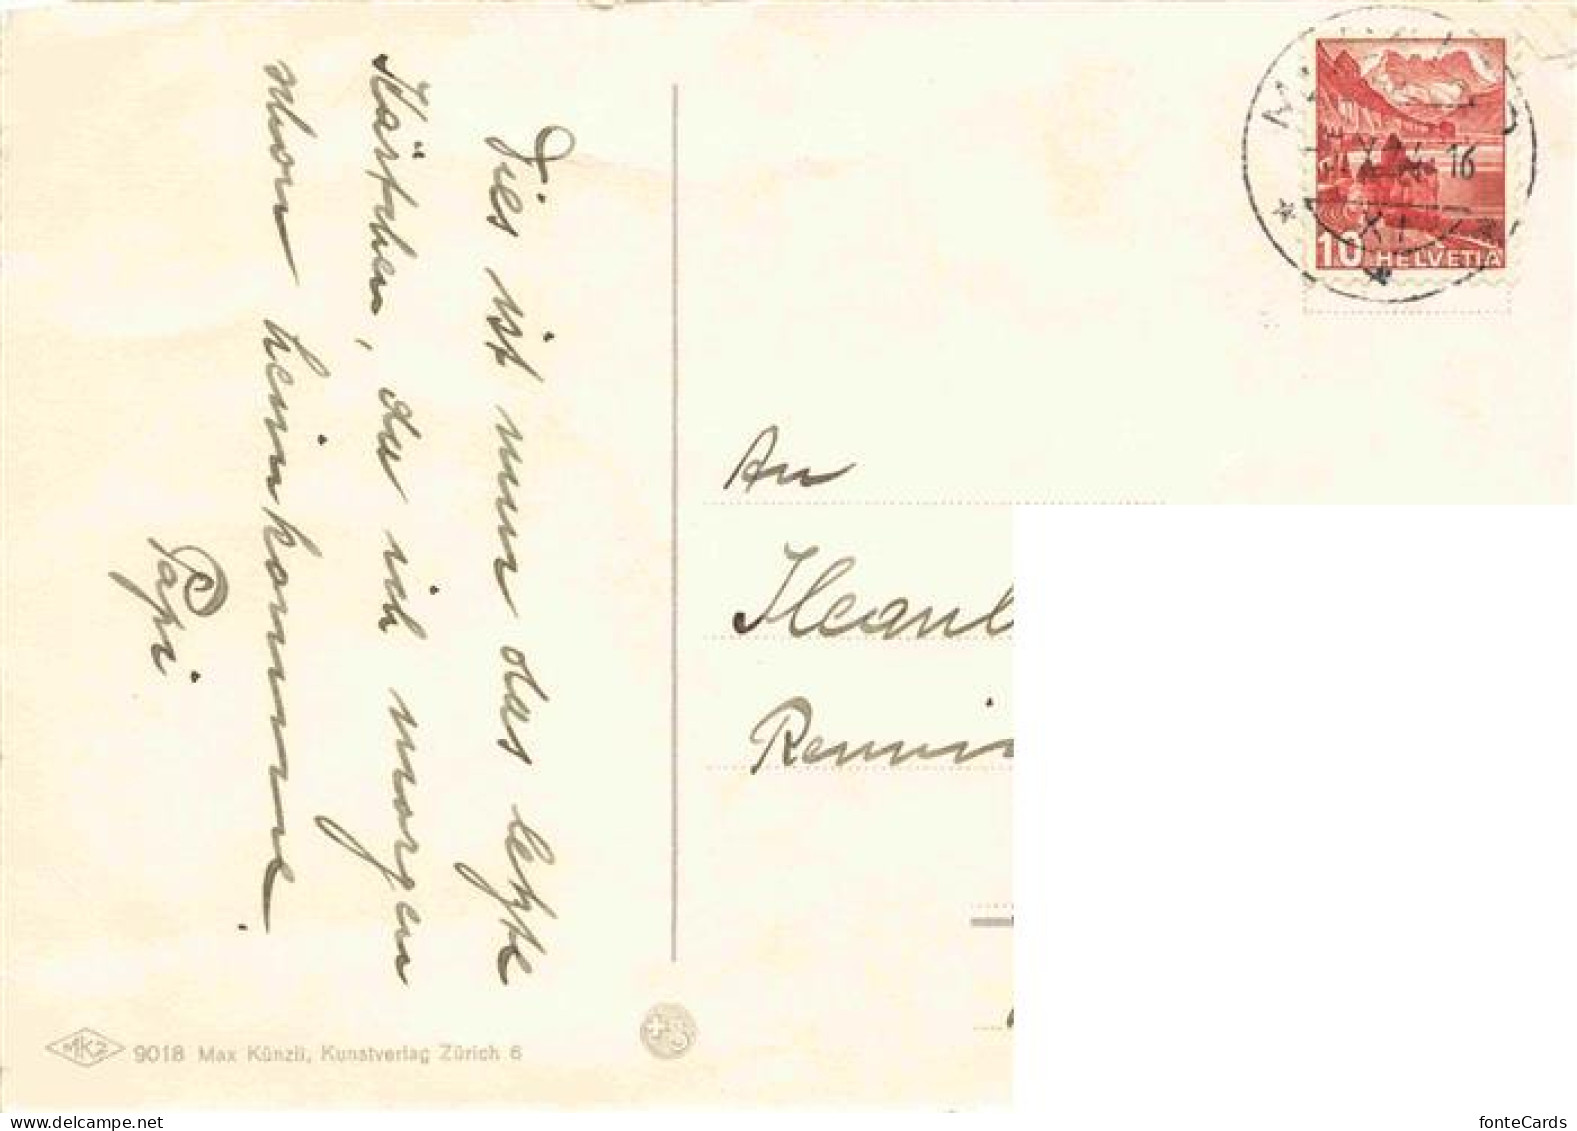 Dies ist nun das letzte
Kärtchen, da ich morgen
schon heimkomme.
Papi
An
10 HELVETIA
16
XI
MKZ 9018 Max Künzli, Kunstverlag Zürich 6
fonteCards